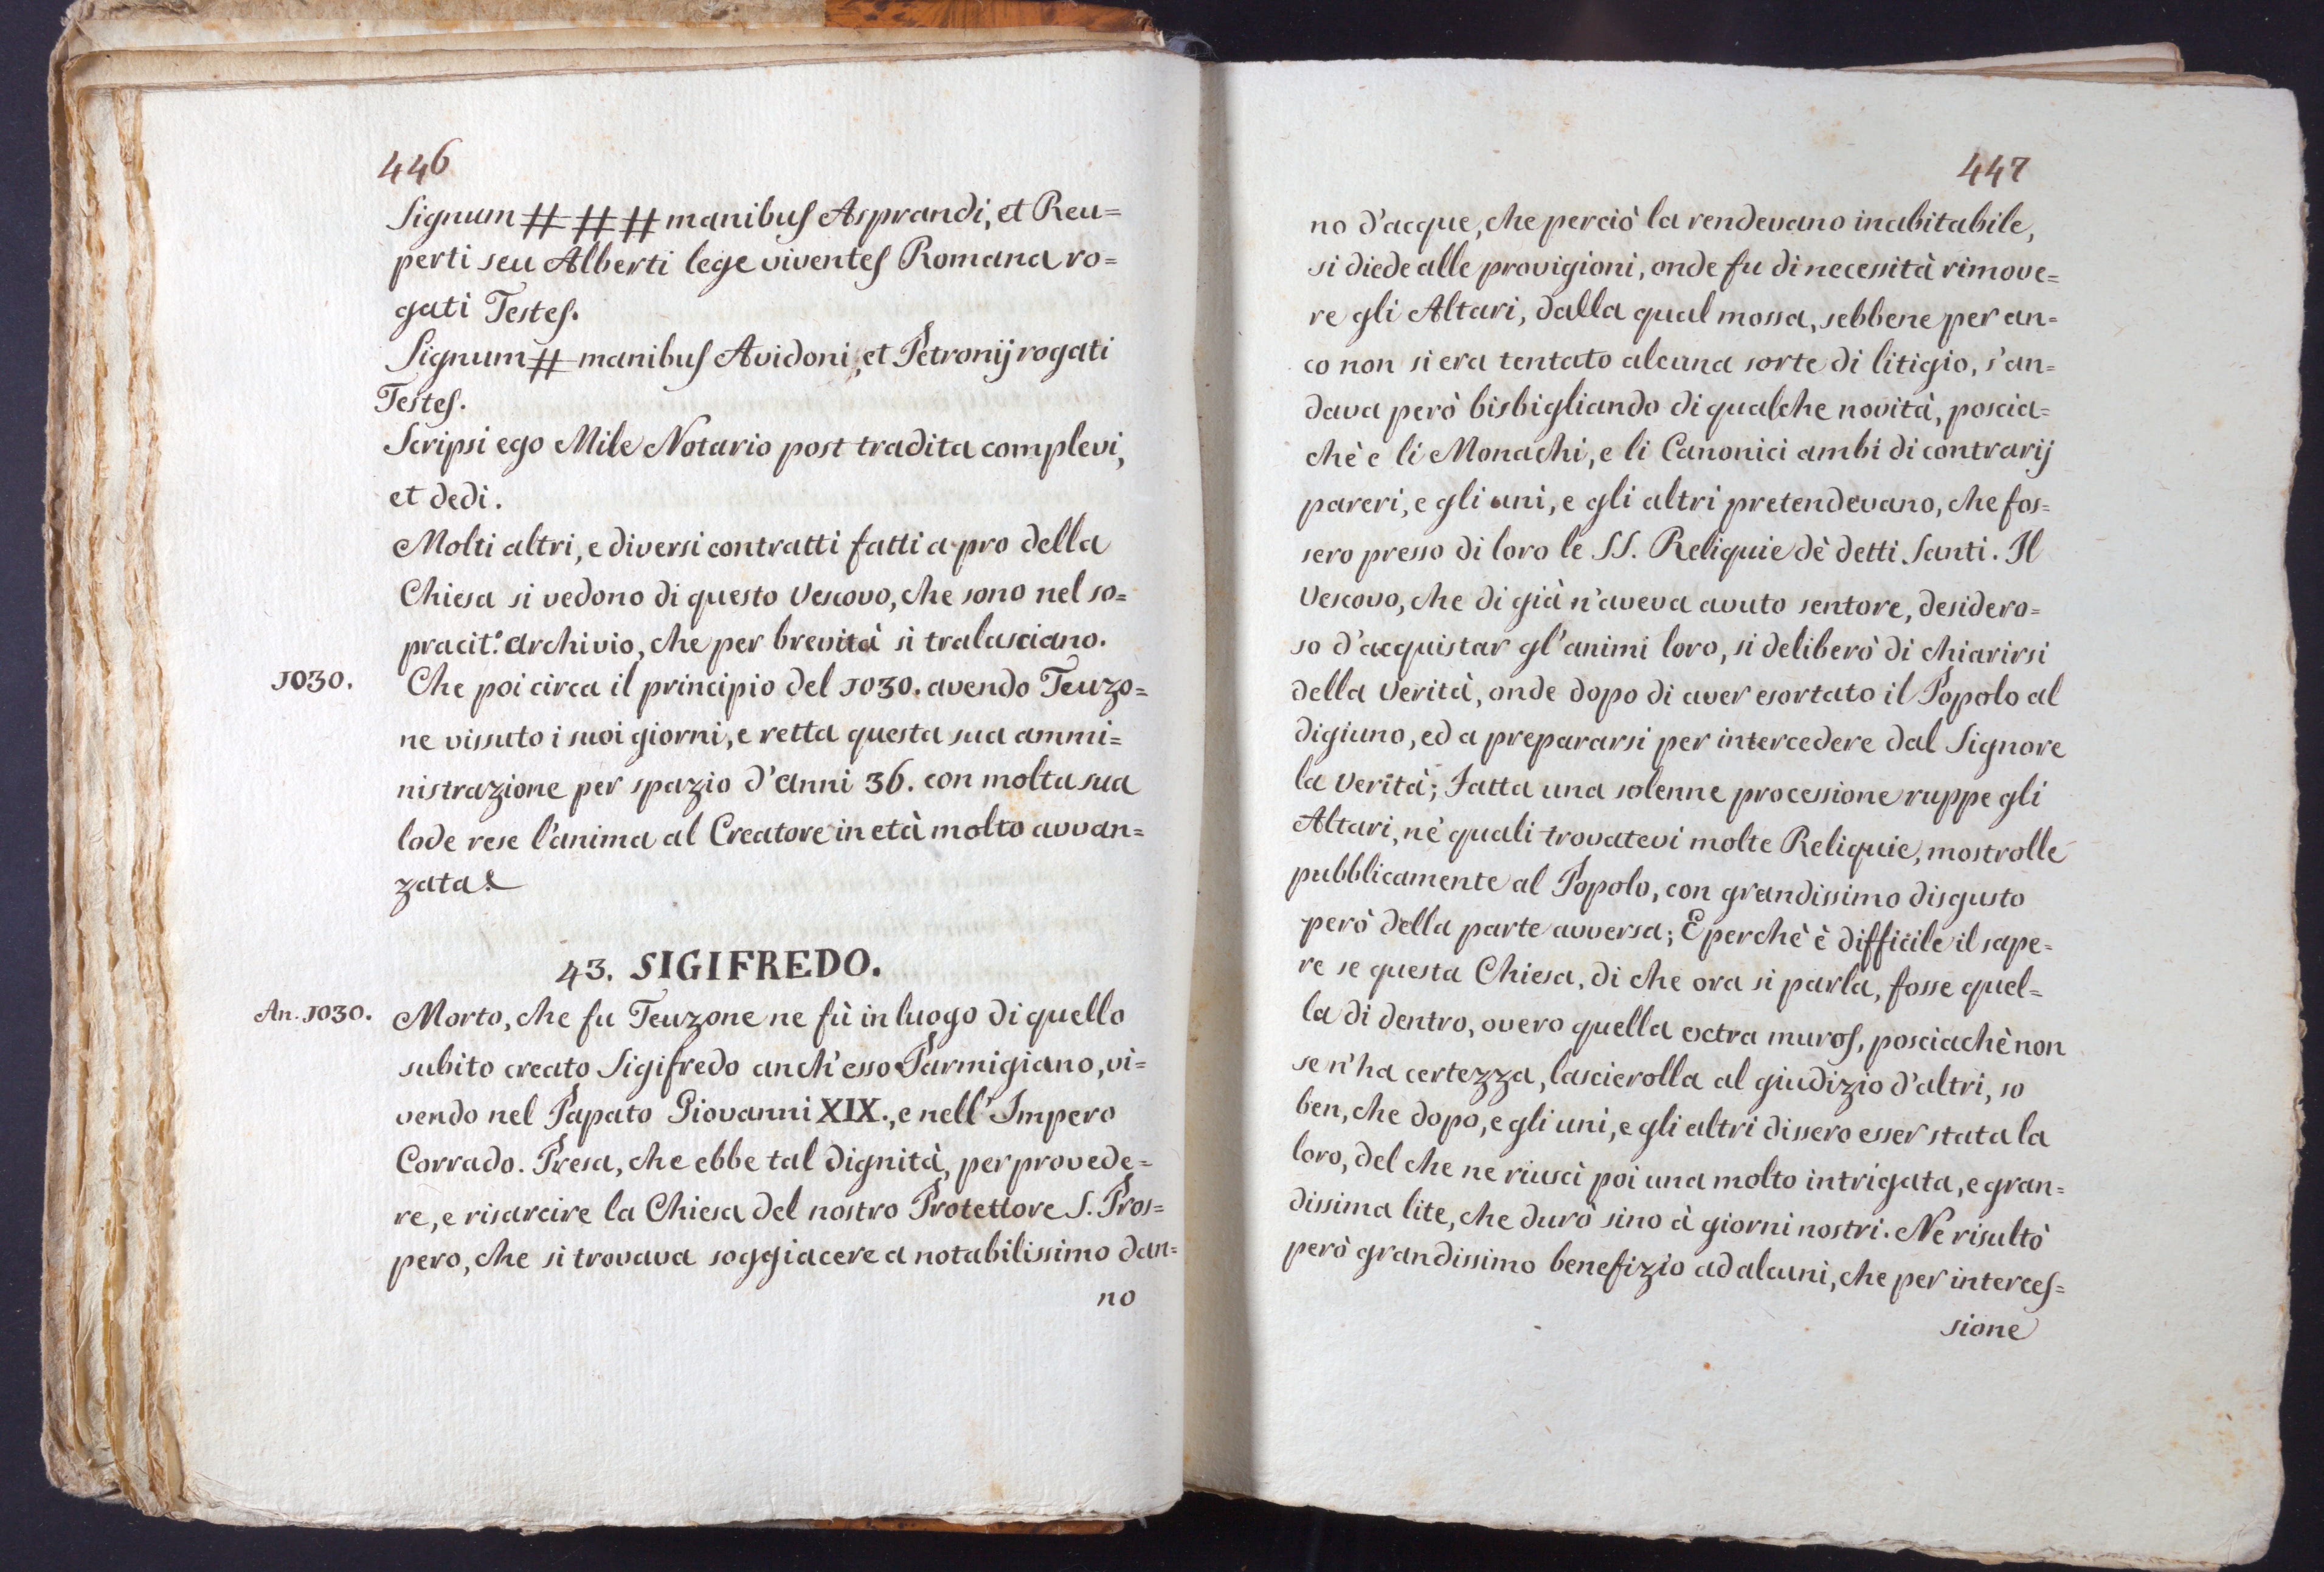 446
Signum # # # manibus Asprandi, et Reu=
perti seu Alberti lege viventes Romana ro=
gati Testes.
Signum # manibus Avidoni, et Petronij rogati
Testes.
Scripsi ego Mile Notario post tradita complevi,
et dedi.
Molti altri, e diversi contratti fatti a pro della
Chiesa si vedono di questo Vescovo, che sono nel so=
pracit.º Archivio, che per brevità si tralasciano.
1030. Che poi circa il principio del 1030. avendo Teuzo=
ne vissuto i suoi giorni, e retta questa sua ammi=
nistrazione per spazio d'Anni 36. con molta sua
lode rese l'anima al Creatore in età molto avvan=
zata.
43. SIGIFREDO.
An. 1030. Morto, che fu Teuzone ne fù in luogo di quello
subito creato Sigifredo anch'esso Parmigiano, vi=
vendo nel Papato Giovanni XIX., e nell'Impero
Corrado. Presa, che ebbe tal dignità, per provede=
re, e risarcire la Chiesa del nostro Protettore S. Pros=
pero, che si trovava soggiacere a notabilissimo dan=
no
447
no d'acque, che perciò la rendevano inabitabile,
si diede alle provigioni, onde fu di necessità rimove=
re gli Altari, dalla qual mossa, sebbene per an=
co non si era tentato alcuna sorte di litigio, s'an=
dava però bisbigliando di qualche novità, poscia=
chè e li Monachi, e li Canonici ambi di contrarij
pareri, e gli uni, e gli altri pretendevano, che fos=
sero presso di loro le SS. Reliquie dè detti Santi. Il
Vescovo, che di già n'aveva avuto sentore, desidero=
so d'acquistar gl'animi loro, si deliberò di chiarirsi
della Verità, onde dopo di aver esortato il Popolo al
digiuno, ed a prepararsi per intercedere dal Signore
la Verità; Fatta una solenne processione ruppe gli
Altari, nè quali trovatevi molte Reliquie, mostrolle
pubblicamente al Popolo, con grandissimo disgusto
però della parte avversa; E perchè è difficile il sape=
re se questa Chiesa, di che ora si parla, fosse quel=
la di dentro, overo quella extra muros, posciachè non
se n'ha certezza, lascierolla al giudizio d'altri, so
ben, che dopo, e gli uni, e gli altri dissero esser stata la
loro, del che ne riuscì poi una molto intrigata, e gran=
dissima lite, che durò sino à giorni nostri. Ne risultò
però grandissimo benefizio ad alcuni, che per interces=
sione